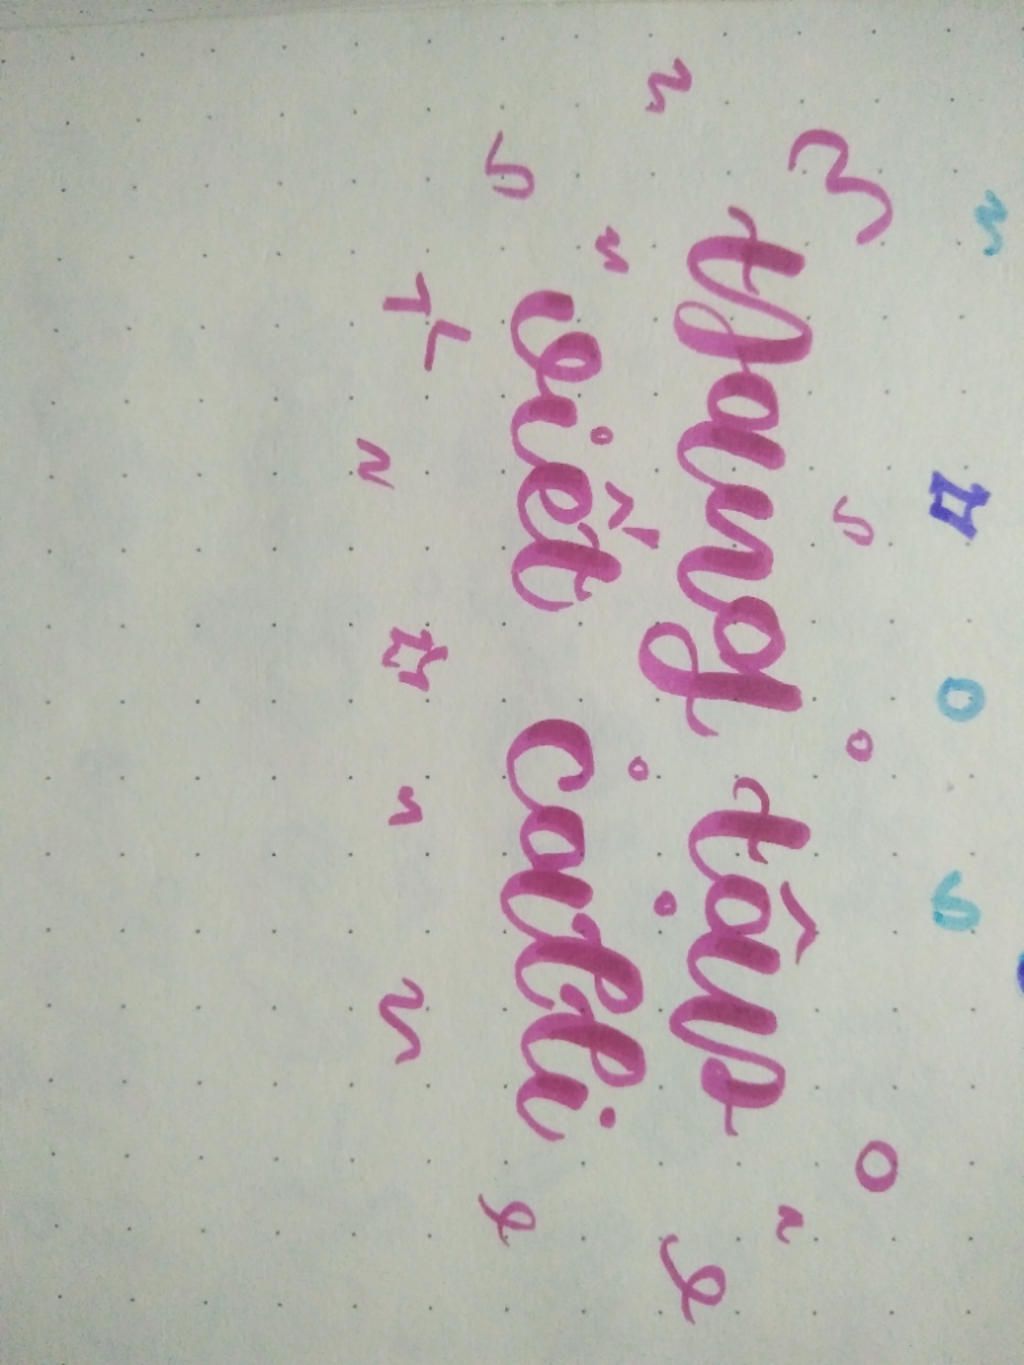 trang tập
viết calli